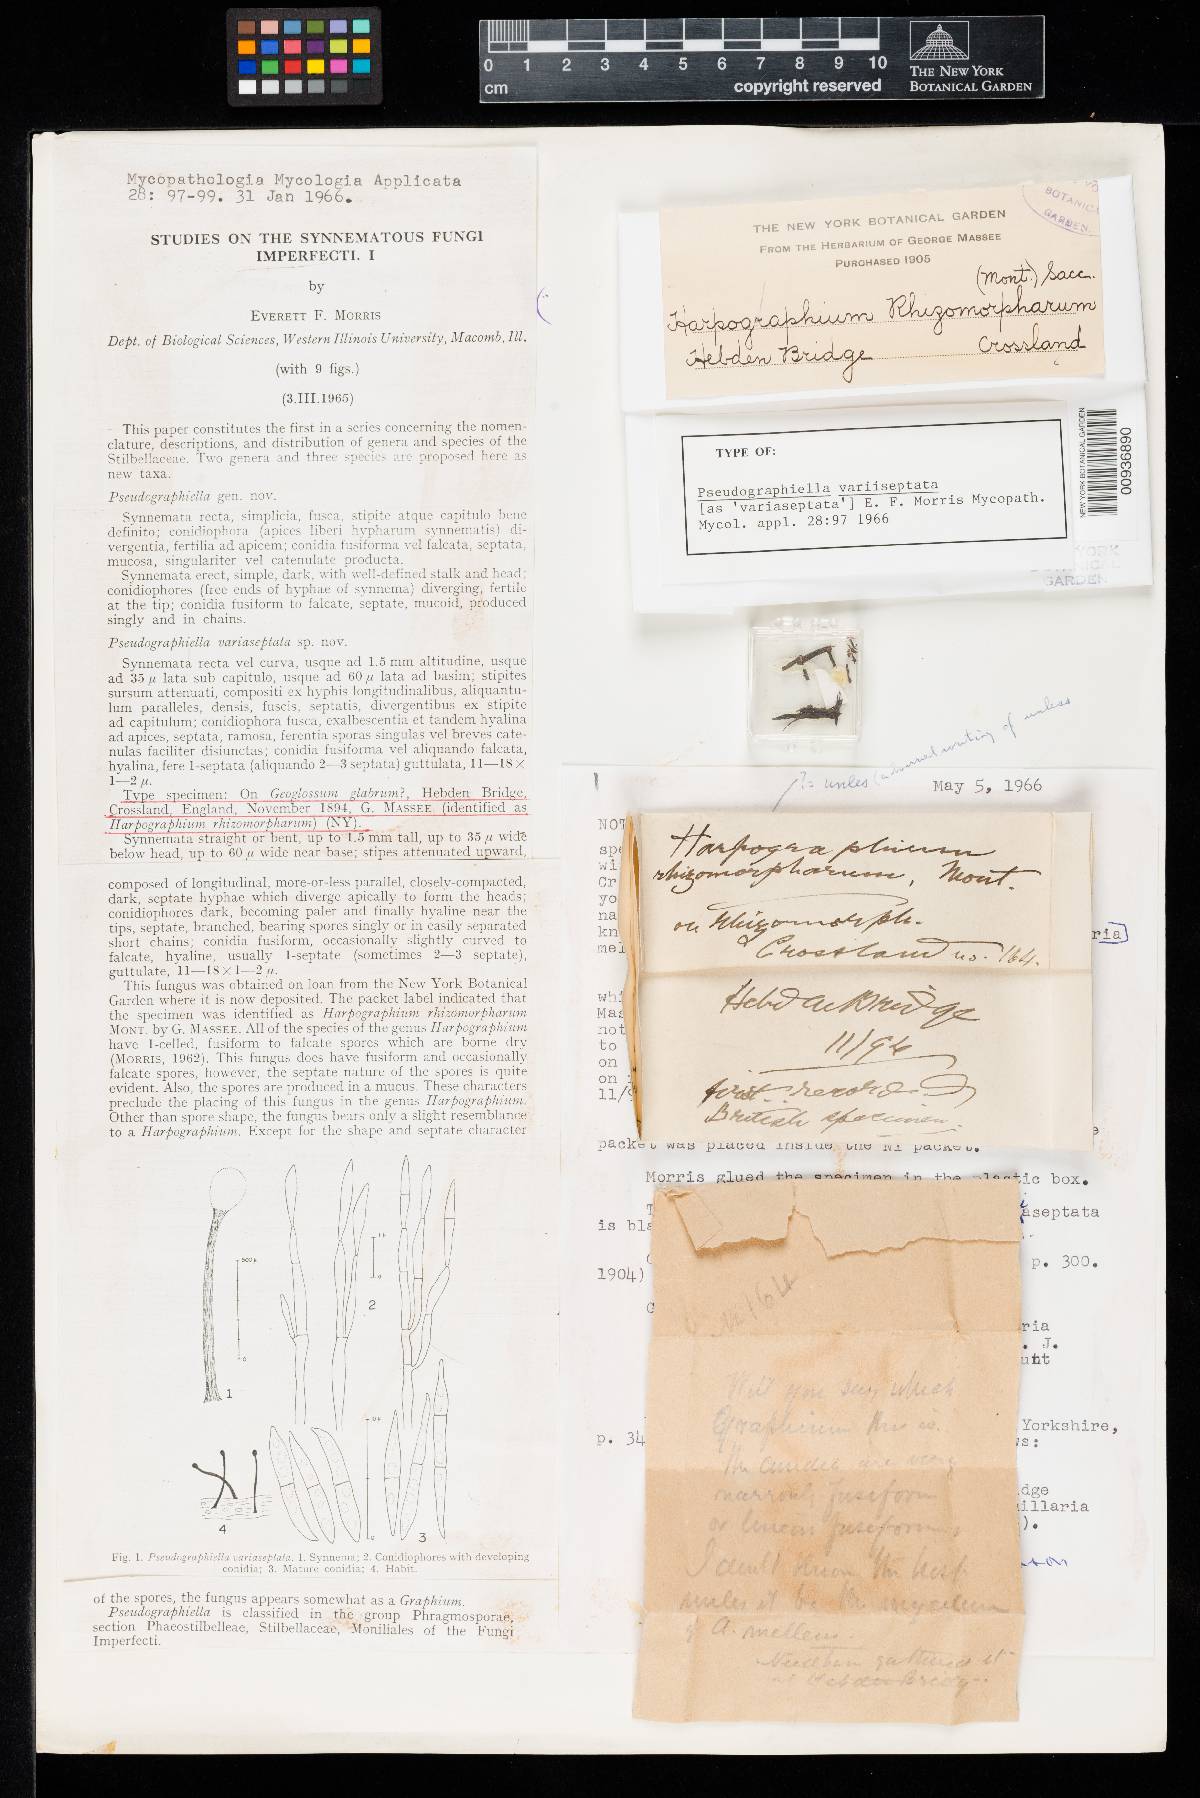 0 1 2 3 4 5 6 7 8 9 10
cm
copyright reserved
THE NEW YORK
BOTANICAL GARDEN
Mycopathologia Mycologia Applicata
28: 97-99. 31 Jan 1966.
STUDIES ON THE SYNNEMATOUS FUNGI
IMPERFECTI. I
by
EVERETT F. MORRIS
Dept. of Biological Sciences, Western Illinois University, Macomb, Ill.
(with 9 figs.)
(3.III.1965)
This paper constitutes the first in a series concerning the nomen-
clature, descriptions, and distribution of genera and species of the
Stilbellaceae. Two genera and three species are proposed here as
new taxa.
Pseudographiella gen. nov.
Synnemata recta, simplicia, fusca, stipite atque capitulo bene
definito; conidiophora (apices liberi hypharum synnematis) di-
vergentia, fertilia ad apicem; conidia fusiforma vel falcata, septata,
mucosa, singulariter vel catenulate producta.
Synnemata erect, simple, dark, with well-defined stalk and head;
conidiophores (free ends of hyphae of synnema) diverging, fertile
at the tip; conidia fusiform to falcate, septate, mucoid, produced
singly and in chains.
Pseudographiella variaseptata sp. nov.
Synnemata recta vel curva, usque ad 1.5 mm altitudine, usque
ad 35 µ lata sub capitulo, usque ad 60 µ lata ad basim; stipites
sursum attenuati, compositi ex hyphis longitudinalibus, aliquantu-
lum paralleles, densis, fuscis, septatis, divergentibus ex stipite
ad capitulum; conidiophora fusca, exalbescentia et tandem hyalina
ad apices, septata, ramosa, ferentia sporas singulas vel breves cate-
nulas faciliter disiunctas; conidia fusiforma vel aliquando falcata,
hyalina, fere 1-septata (aliquando 2—3 septata) guttulata, 11—18×
1—2 µ.
Type specimen: On Geoglossum glabrum?, Hebden Bridge,
Crossland, England, November 1894, G. MASSEE (identified as
Harpographium rhizomorpharum) (NY).
Synnemata straight or bent, up to 1.5 mm tall, up to 35 µ wide
below head, up to 60 µ wide near base; stipes attenuated upward,
composed of longitudinal, more-or-less parallel, closely-compacted,
dark, septate hyphae which diverge apically to form the heads;
conidiophores dark, becoming paler and finally hyaline near the
tips, septate, branched, bearing spores singly or in easily separated
short chains; conidia fusiform, occasionally slightly curved to
falcate, hyaline, usually 1-septate (sometimes 2—3 septate),
guttulate, 11—18×1—2 µ.
This fungus was obtained on loan from the New York Botanical
Garden where it is now deposited. The packet label indicated that
the specimen was identified as Harpographium rhizomorpharum
MONT. by G. MASSEE. All of the species of the genus Harpographium
have 1-celled, fusiform to falcate spores which are borne dry
(MORRIS, 1962). This fungus does have fusiform and occasionally
falcate spores, however, the septate nature of the spores is quite
evident. Also, the spores are produced in a mucus. These characters
preclude the placing of this fungus in the genus Harpographium.
Other than spore shape, the fungus bears only a slight resemblance
to a Harpographium. Except for the shape and septate character
1
2
3
4
Fig. 1. Pseudographiella variaseptata. 1. Synnema; 2. Conidiophores with developing
conidia; 3. Mature conidia; 4. Habit.
of the spores, the fungus appears somewhat as a Graphium.
Pseudographiella is classified in the group Phragmosporae,
section Phaeostilbelleae, Stilbellaceae, Moniliales of the Fungi
Imperfecti.
BOTANIC
GARDEN.
THE NEW YORK BOTANICAL GARDEN
FROM THE HERBARIUM OF GEORGE MASSEE
PURCHASED 1905
(Mont.) Sacc.
Harpographium Rhizomorpharum
Hebden Bridge Crossland
TYPE OF:
Pseudographiella variiseptata
[as 'variaseptata'] E. F. Morris Mycopath.
Mycol. appl. 28:97 1966
NEW YORK BOTANICAL GARDEN
00936890
YORK
GARDEN
?= unless
of unless
May 5, 1966
NOT
spe
wi
Cr
yo
na
kn
ria
mel
Harpographium
rhizomorpharum, Mont.
on rhizomorph.
Crossland no. 164.
Hebden Bridge
11/94
first record
British specimen.
whi
Mas
not
to
on
on
11/9
packet was placed inside the NY packet.
Morris glued the specimen in the plastic box.
aseptata
is bla
p. 300.
1904)
ria
. J.
unt
Yorkshire,
p. 34
s:
dge
illaria
).
no 164
Will you say which
Graphium this is.
The conidia are very
narrowly fusiform
or linear fusiform
I don't know the host
unless it be the mycelium
of A. melleus.
Needham gathered it
at Hebden Bridge.